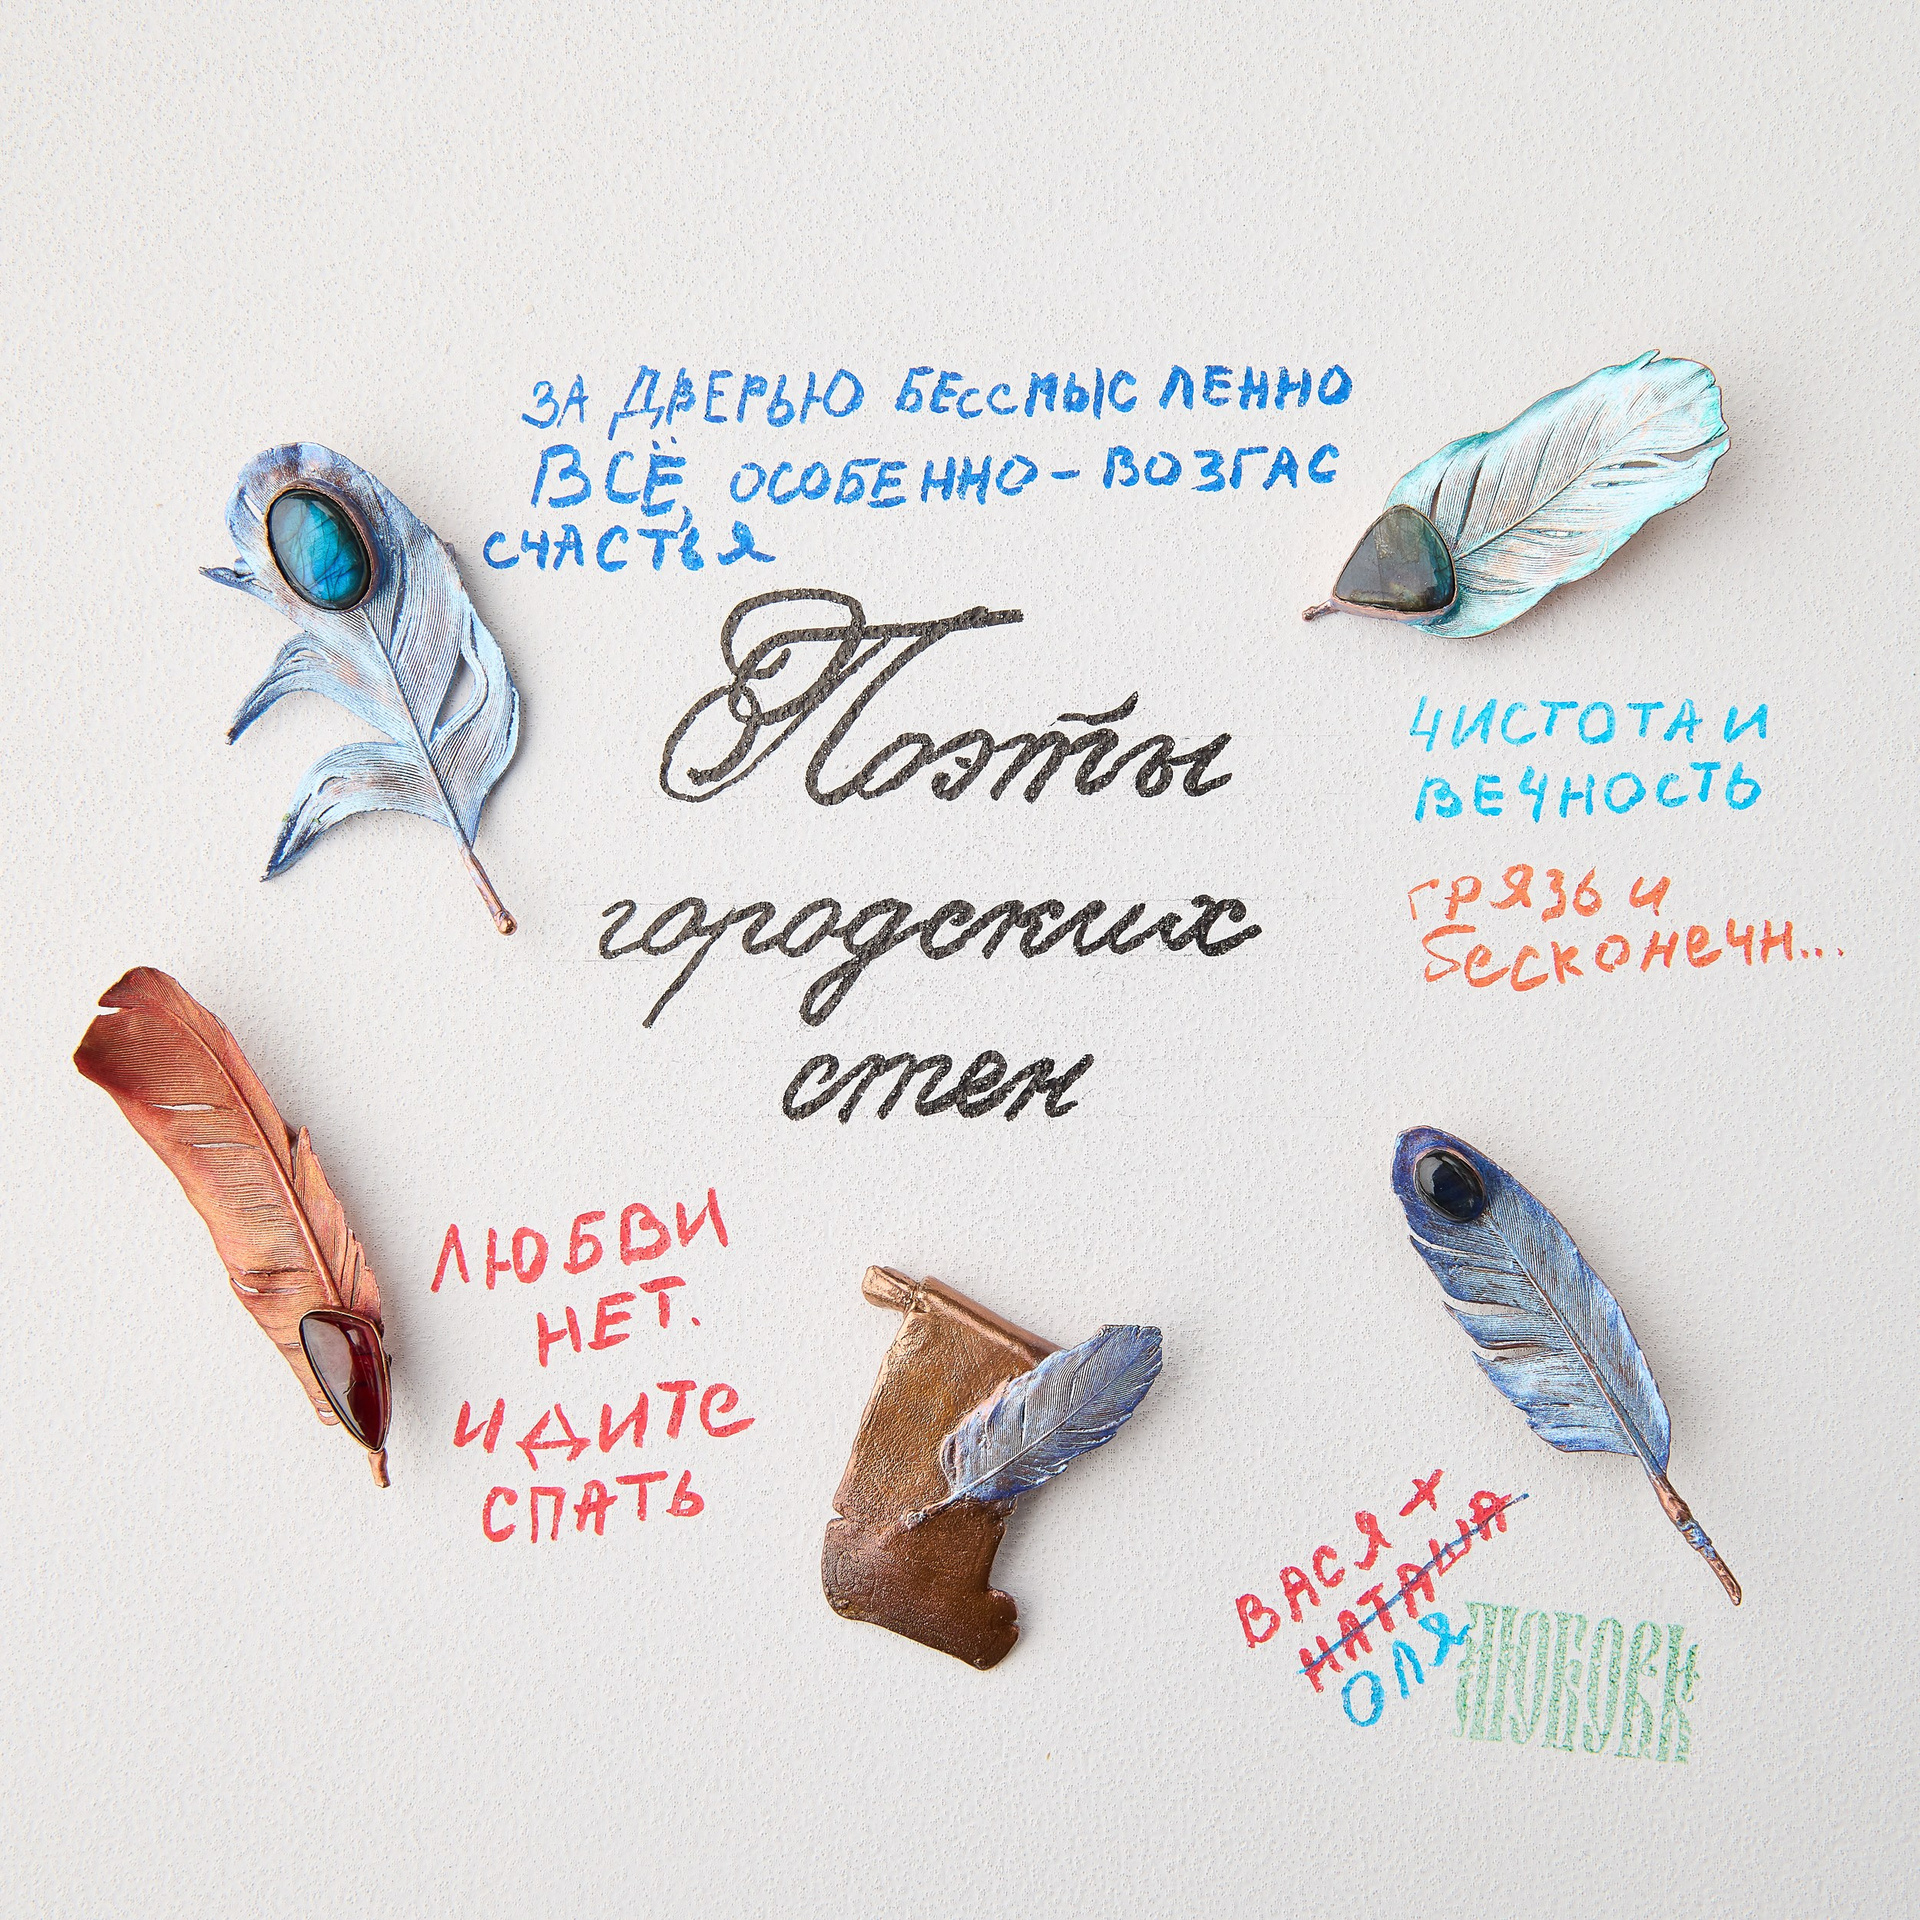 ЗА ДВЕРЬЮ БЕССМЫСЛЕННО
ВСЁ, ОСОБЕННО - ВОЗГЛАС
СЧАСТЬЯ
Поэты
городских
стен
ЧИСТОТА И
ВЕЧНОСТЬ
ГРЯЗЬ И
бесконечн...
ЛЮБВИ
НЕТ.
ИДИТЕ
СПАТЬ
ВАСЯ +
НАТАША
ОЛЯ
ЛЮБОВЬ